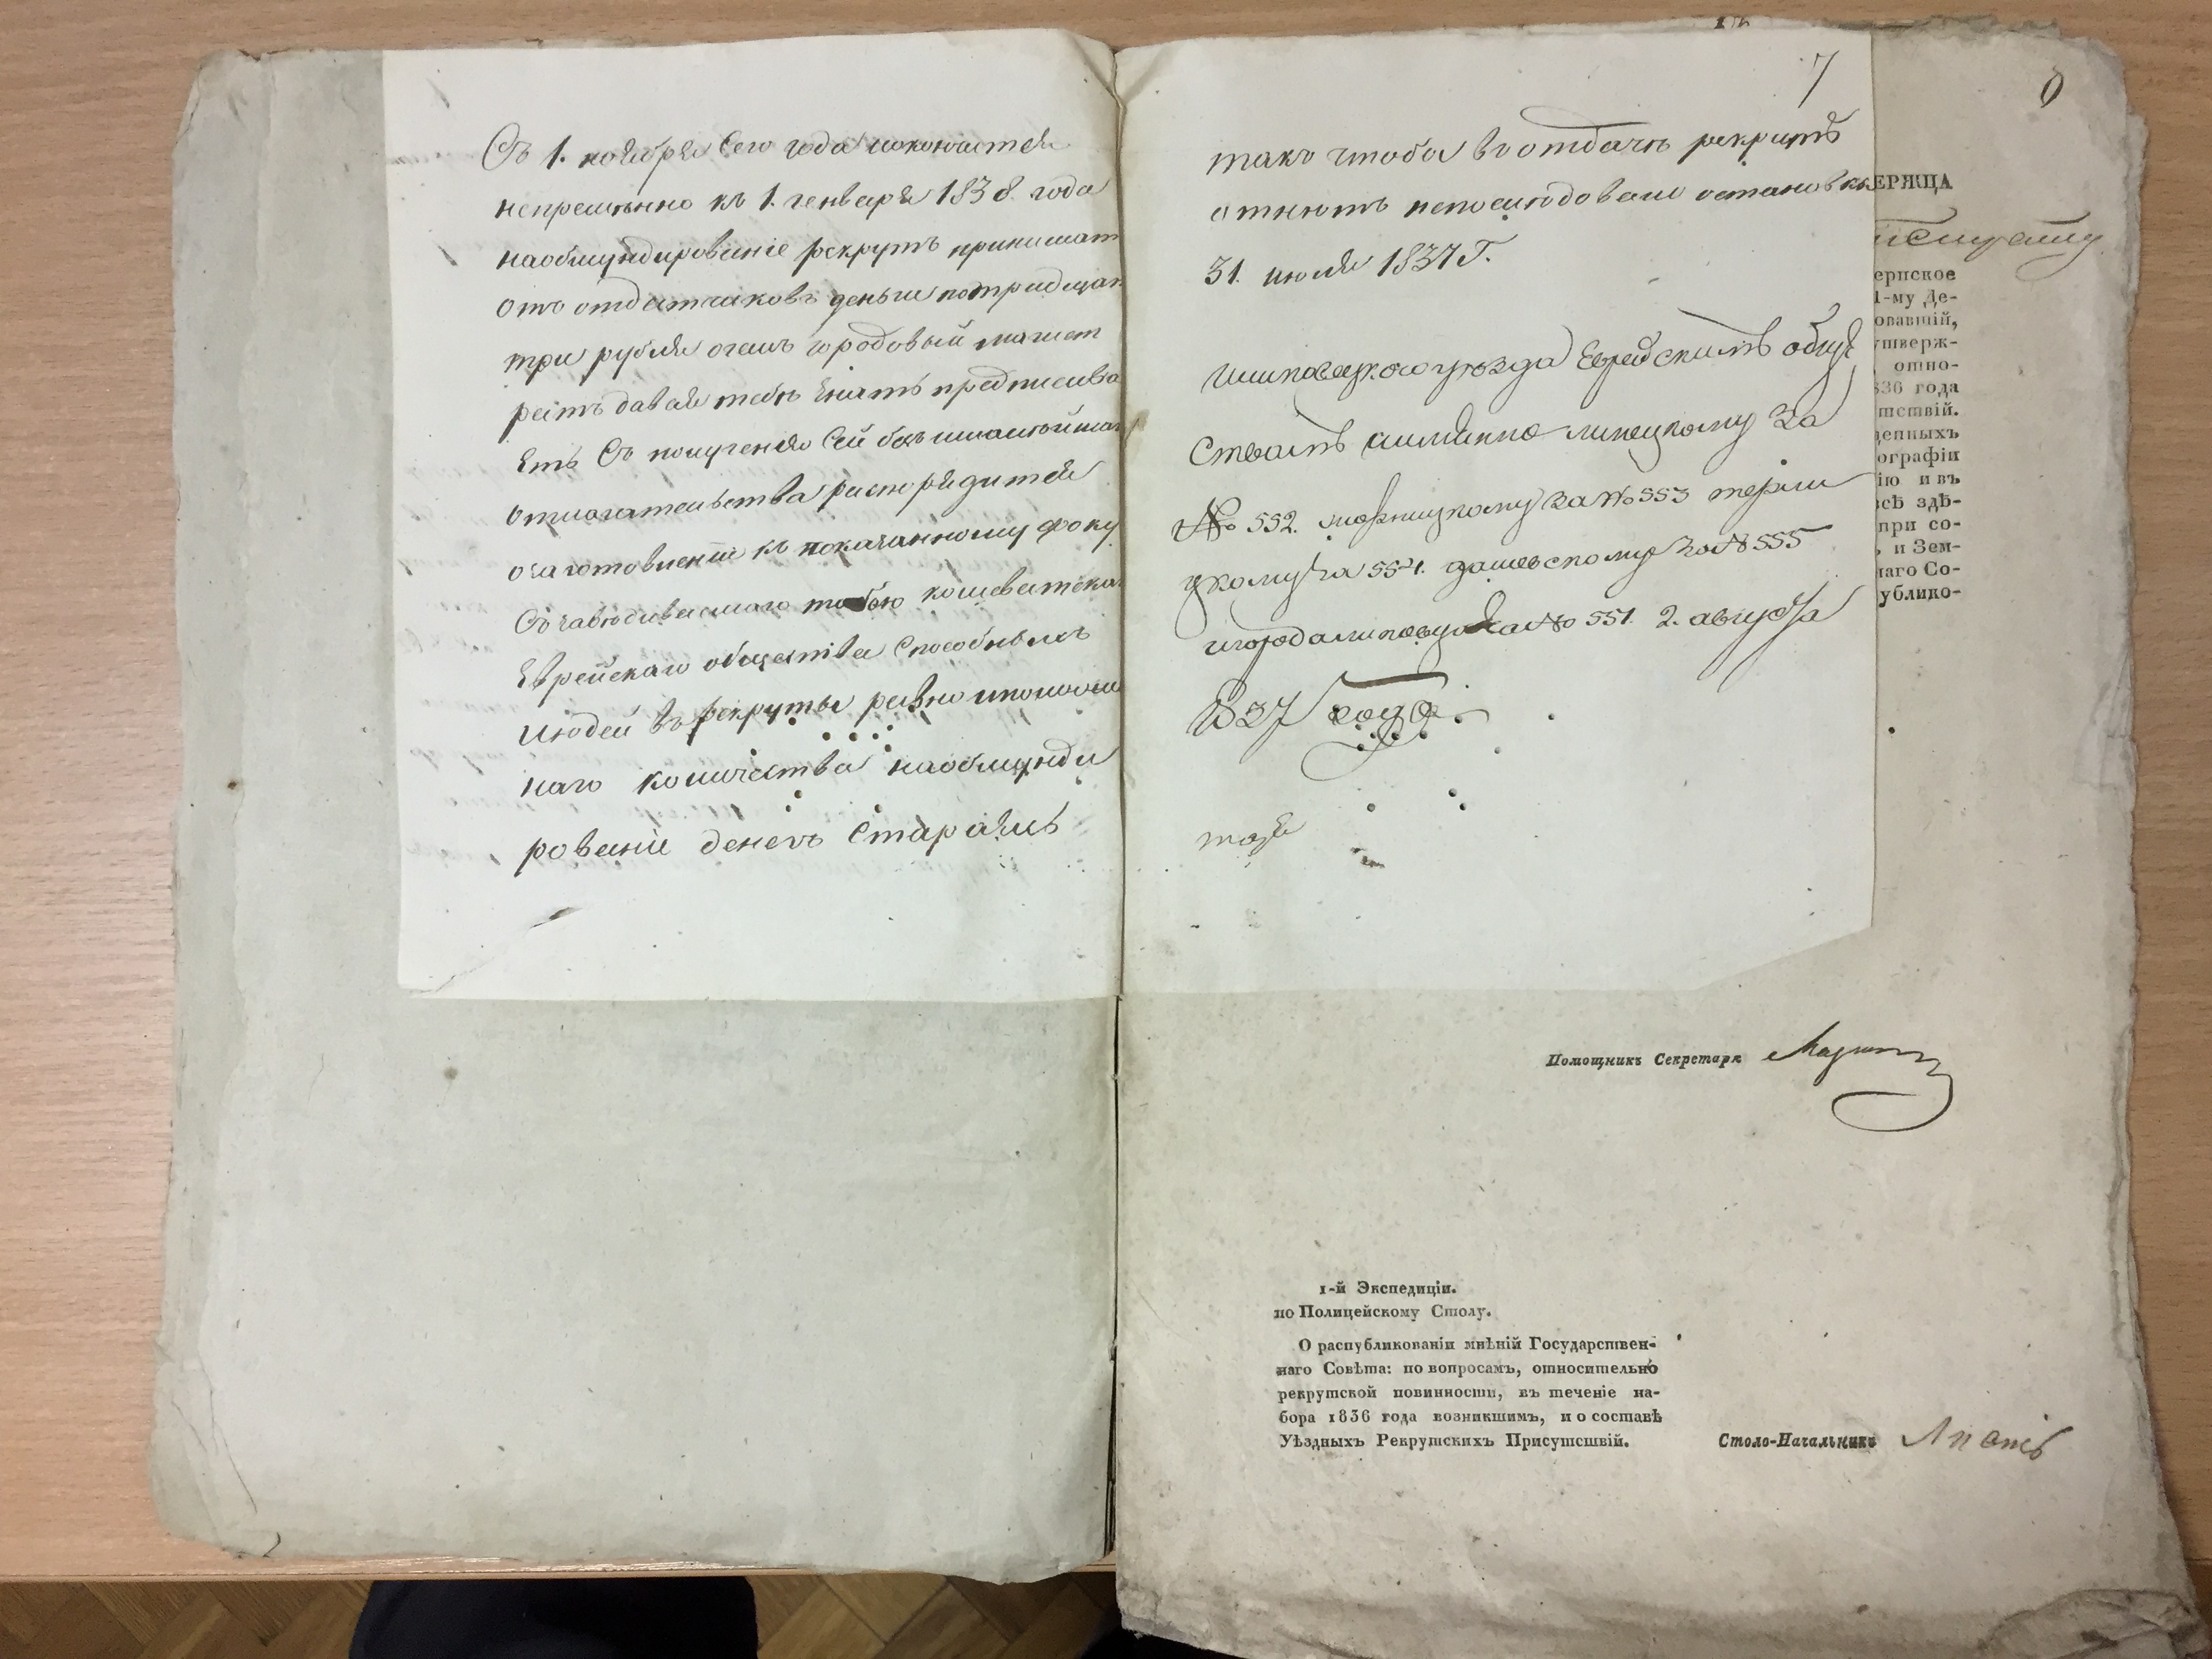 Съ 1. ноября сего года и окончится
непременно къ 1. генваря 1838. года
наобмундированіе рекрутъ принимат
отъ отдатчиковъ деньги потридцат
три рубля очемъ городовый магист
ратъ давая тебѣ знать предписыва
етъ Съ полученія сей безъ малейшаг
отлагательства распорядится
озаготовленіи къ показанному
Съ завѣдиваемаго тобою
Еврейскаго общества способныхъ
людей въ рекруты равно иполож
наго количества наобмунди
рованіе денегъ стараясь
7
такъ чтобы въ отдачѣ рекрутъ
отнюдь непоследовало остановки
31. июля 1837 г.
уезда Еврейскимъ обще
ствамъ имянно линецкому за
№ 552. за № 553 терли
цкому за 554. дашевскому за № 555
игорода липовца за № 551. 2. августа
1837 года
тозе
8
ЕРЯЩА
ернское
1-му Де-
овавшій,
утверж-
, отно-
836 года
тствій.
денныхъ
ографіи
ію и въ
всѣ здѣ-
при со-
, и Зем-
наго Со-
ублико-
Помощникъ Секретаря
1-й Экспедиціи.
по Полицейскому Столу.
О распубликованіи мнѣній Государствен-
наго Совѣта: по вопросамъ, относительно
рекрутской повинности, въ теченіе на-
бора 1836 года возникшимъ, и о составѣ
Уѣздныхъ Рекрутскихъ Присутствій.
Столо-Начальникъ